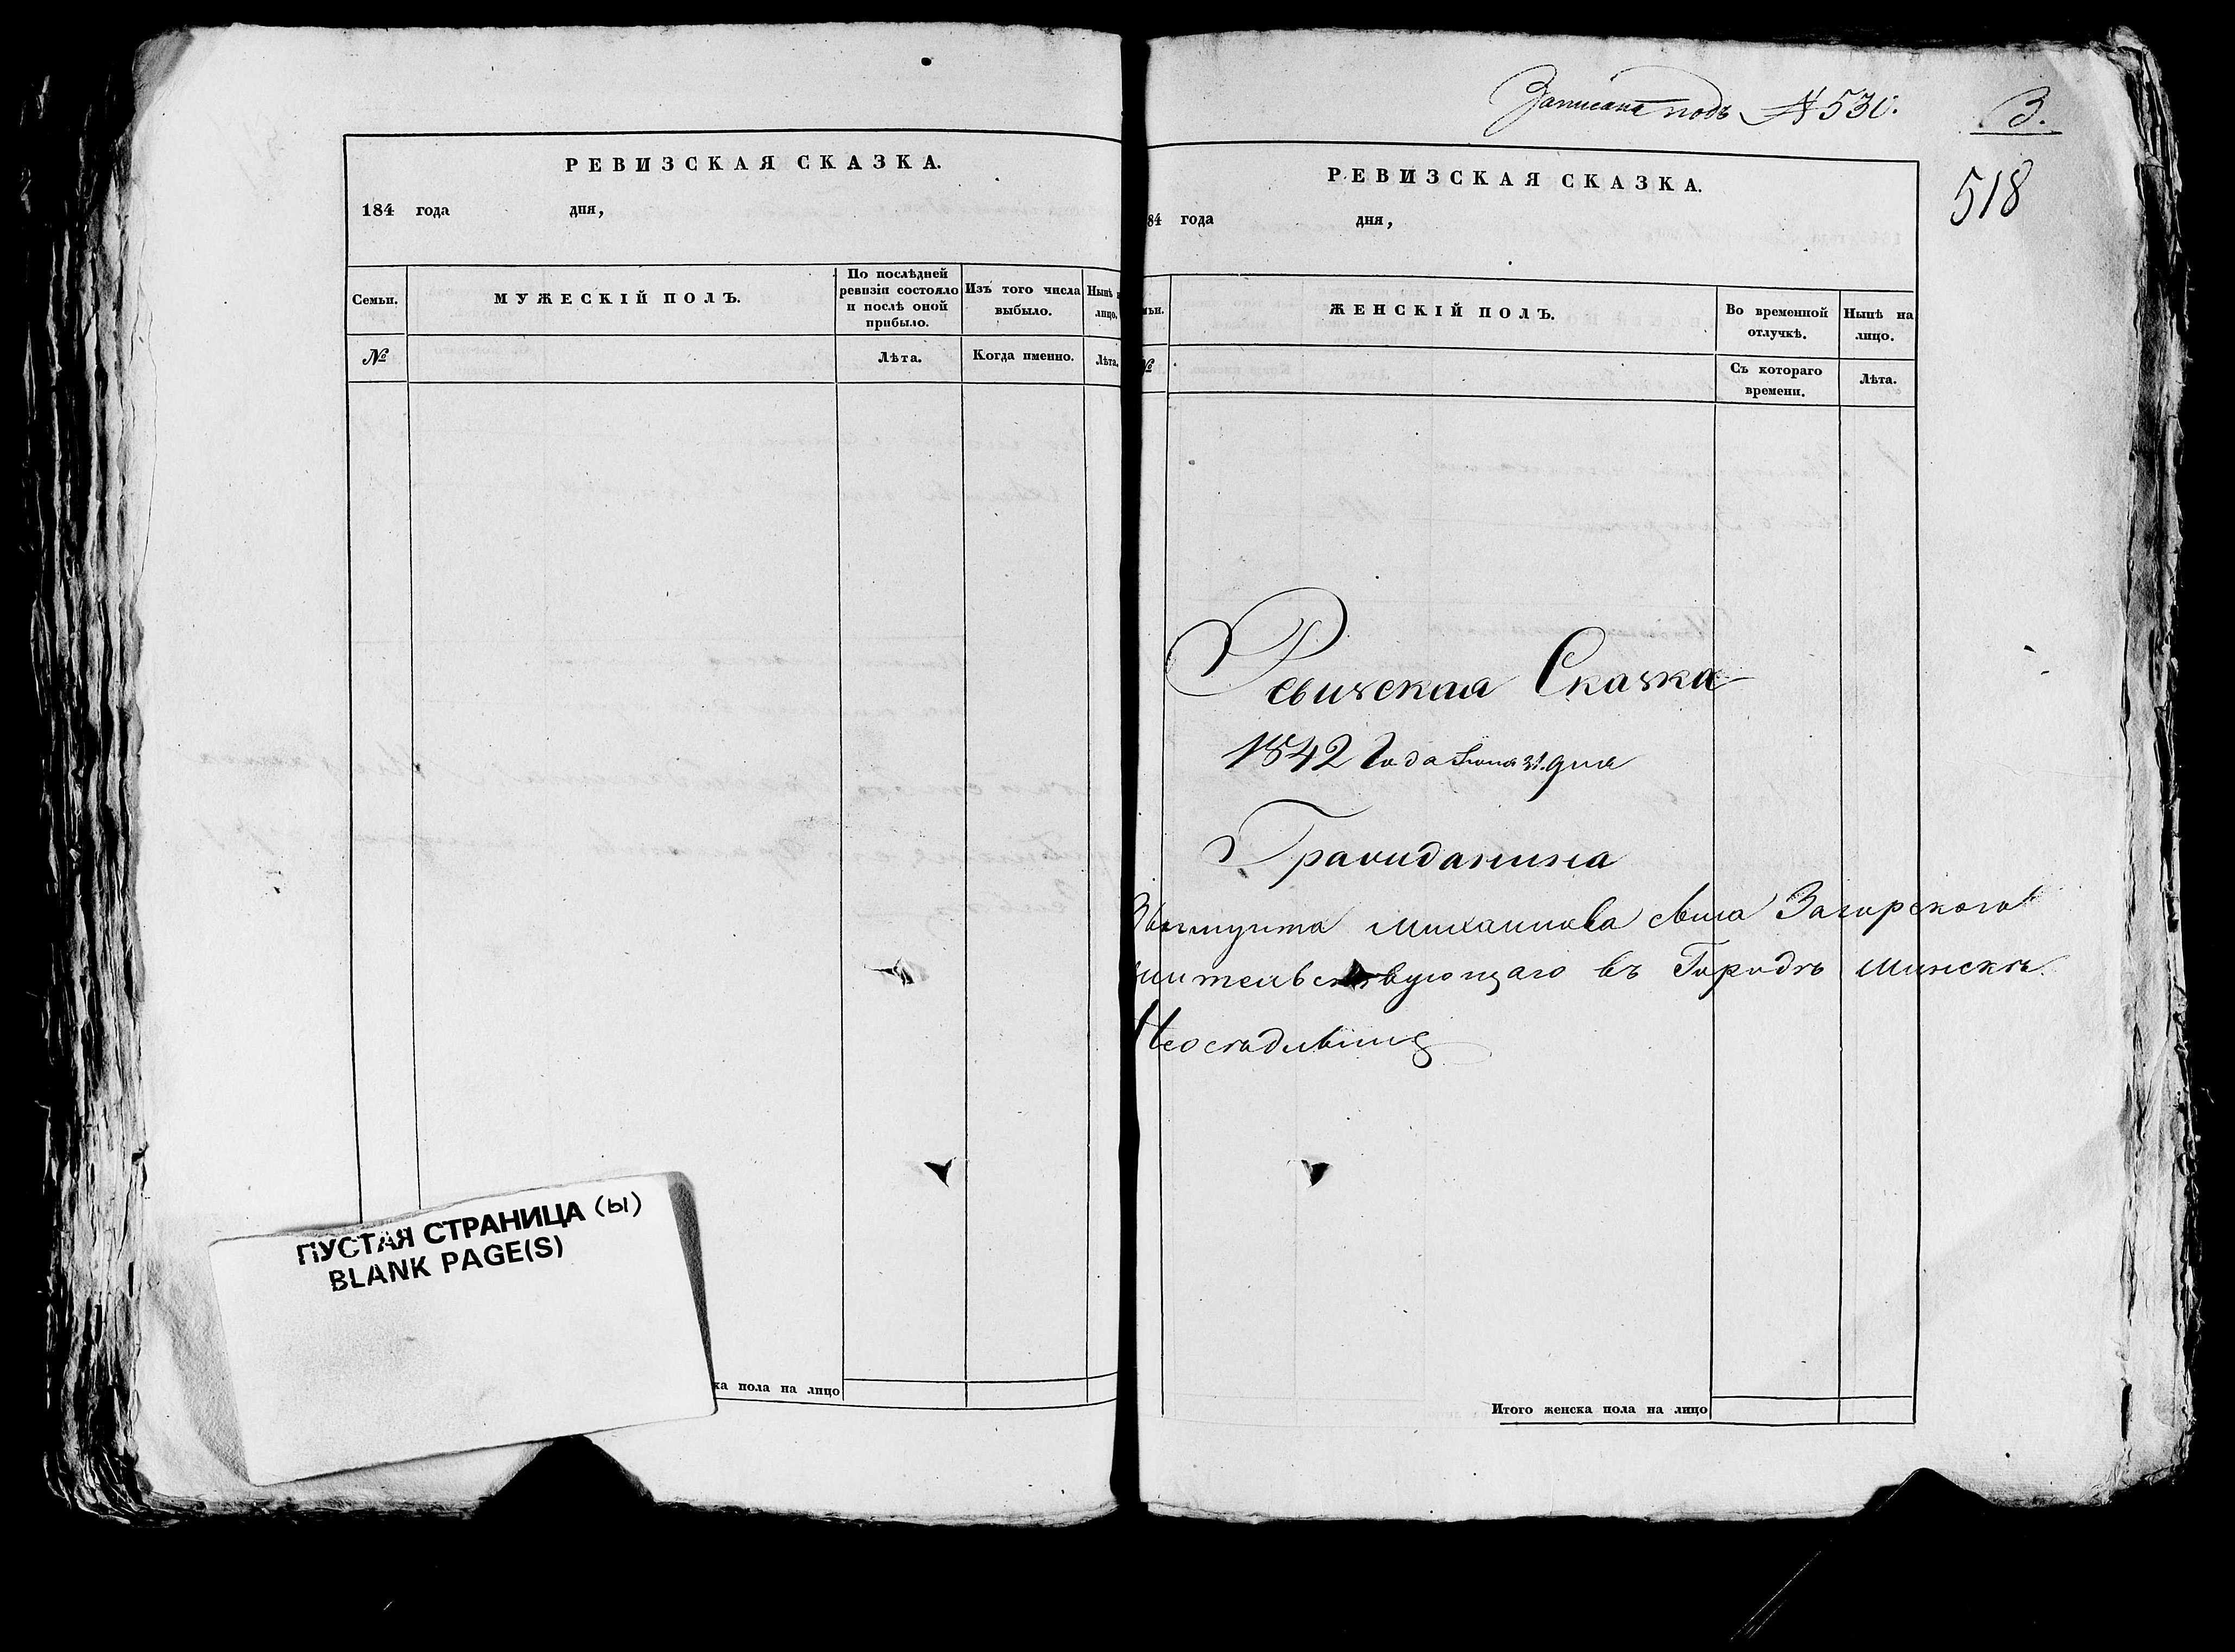 РЕВИЗСКАЯ СКАЗКА.
184 года дня,
Семьи.
МУЖЕСКІЙ ПОЛЪ.
По послѣдней ревизіи состояло и послѣ оной прибыло.
Изъ того числа выбыло.
Нынѣ
лицо.
№
Лѣта.
Когда именно.
Лѣта.
ка пола на лицо
ПУСТАЯ СТРАНИЦА (Ы)
BLANK PAGE(S)
Записана подъ № 530.
3.
518
РЕВИЗСКАЯ СКАЗКА.
84 года дня,
ЖЕНСКІЙ ПОЛЪ.
Во временной отлучкѣ.
Нынѣ на лицо.
№
Съ котораго времени.
Лѣта.
Ревизская Сказка
1842 Года дня
Гражданина
Михайлова сына Загорского
жительствующаго въ Городѣ Минскѣ.
Неосѣдлый
Итого женска пола на лицо